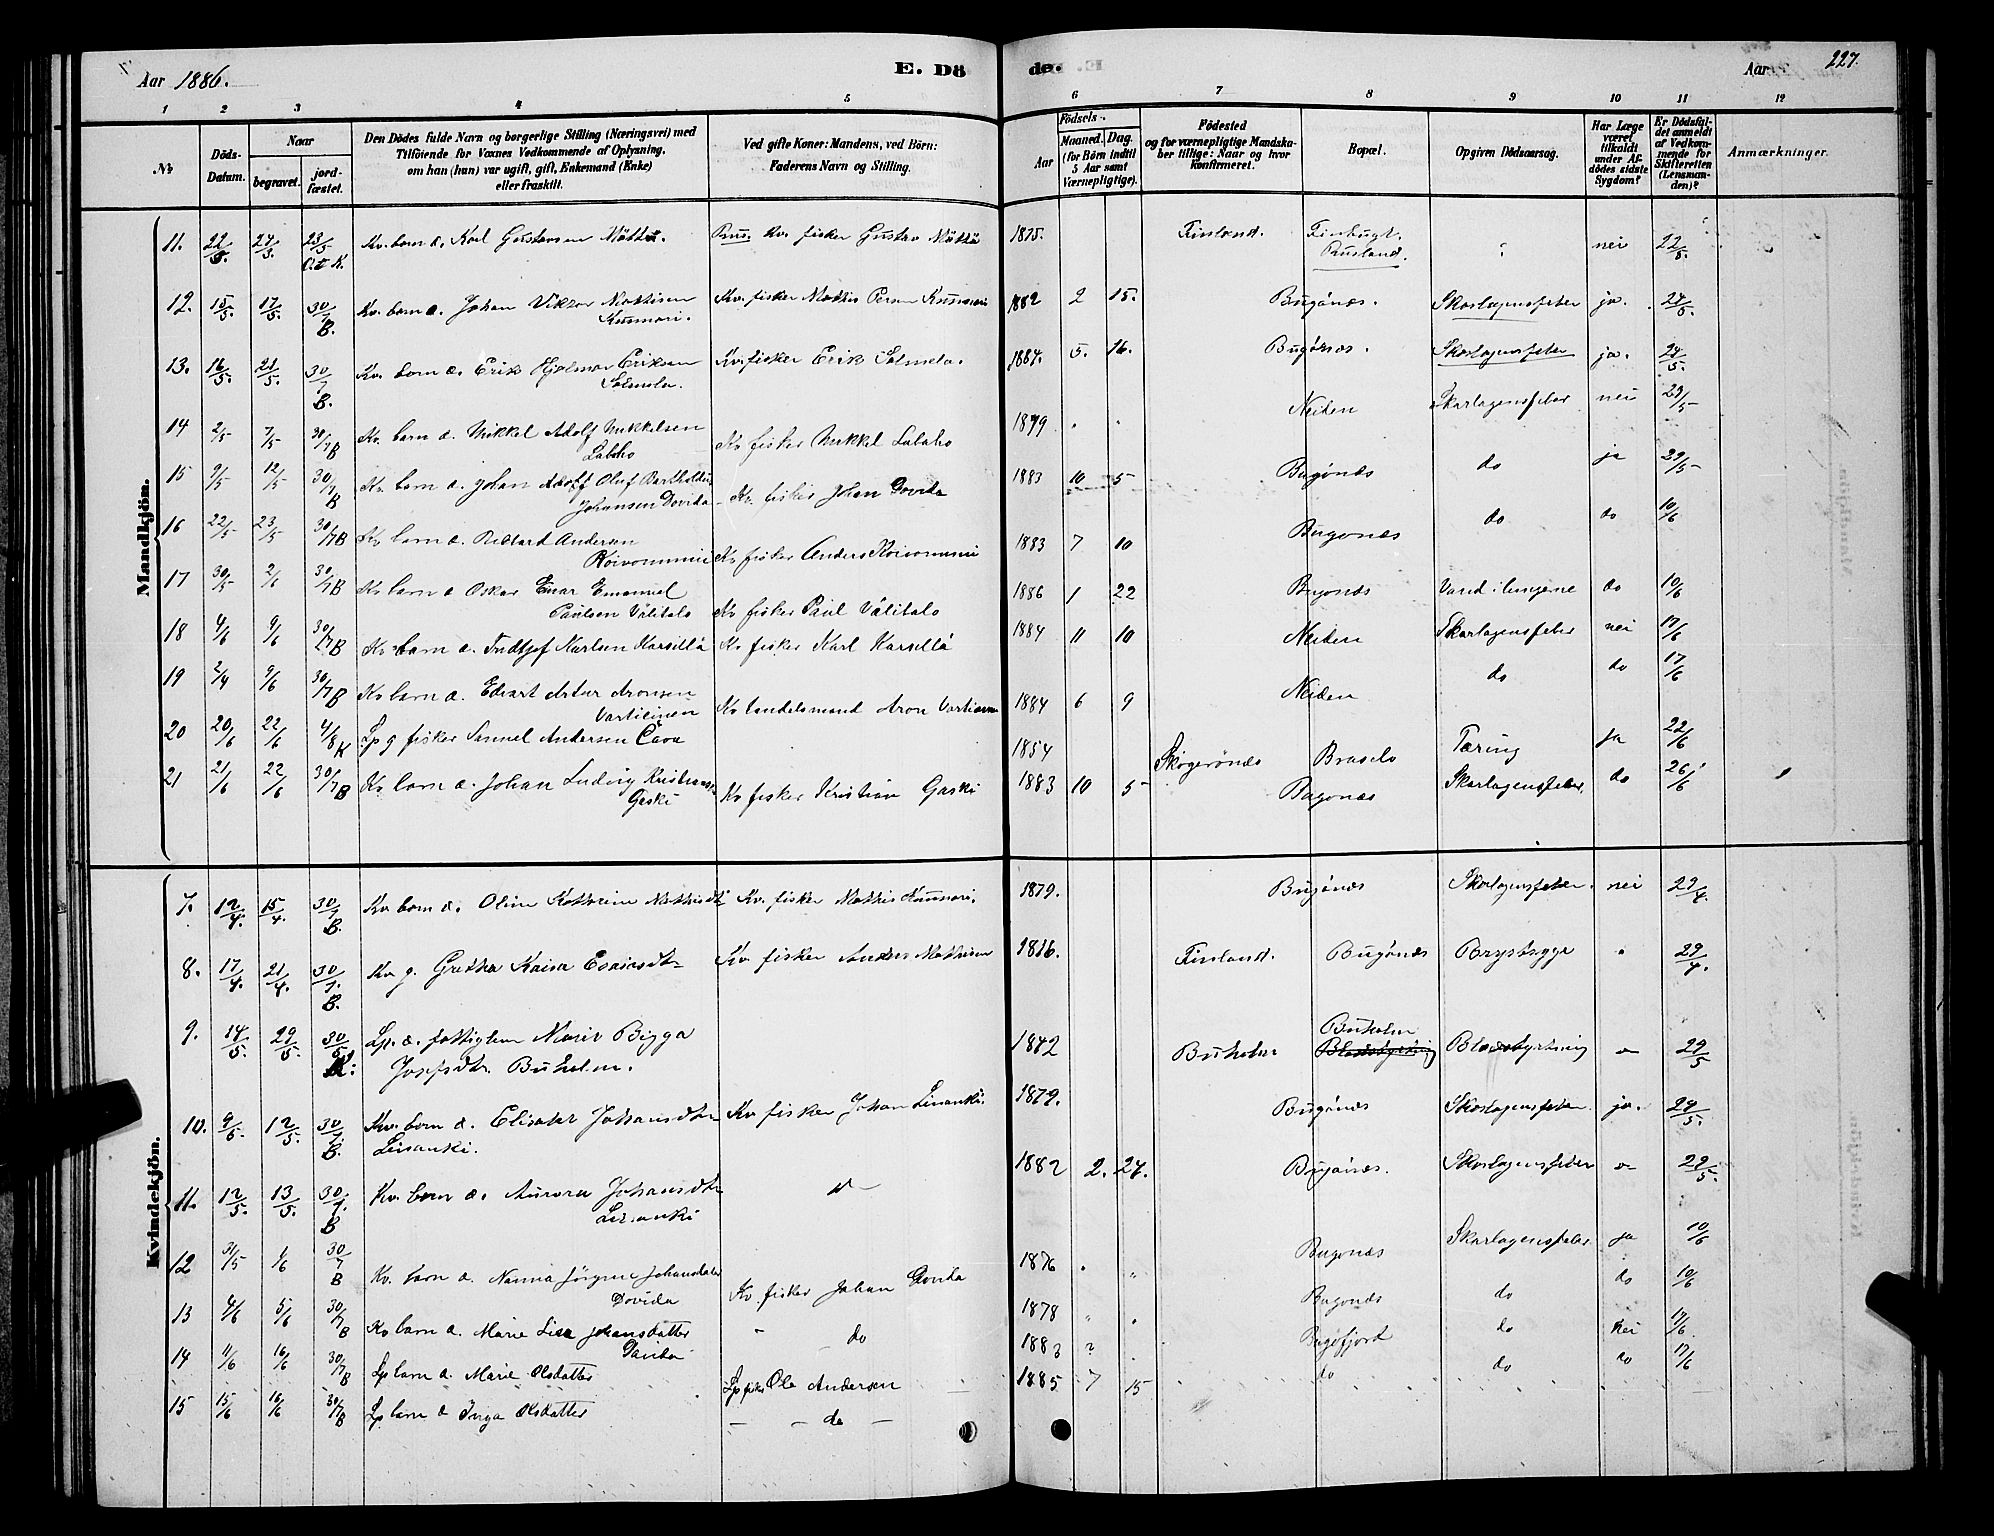 Aar 1886. E. Dö
de. Aar 227.
1 2 3 4 5 6 7 8 9 10 11 12
No
Döds-Datum.
Naar
begravet.
jord-fæstet.
Den Dödes fulde Navn og borgerlige Stilling (Næringsvei) med
Tilföiende for Voxnes Vedkommende af Oplysning,
om han (hun) var ugift, gift, Enkemand (Enke)
eller fraskilt.
Ved gifte Koner: Mandens, ved Börn:
Faderens Navn og Stilling.
Födsels-
Aar
Maaned. Dag.
(for Börn indtil
5 Aar samt
Værnepligtige).
Födested
og for værnepligtige Mandska-
ber tillige: Naar og hvor
konfirmeret.
Bopæl.
Opgiven Dödsaarsag.
Har Læge
været
tilkaldt
under Af-
dödes sidste
Sygdom?
Er Dödsfal-
det anmeldt
af Vedkom-
mende for
Skifteretten
(Lensman-
den)?
Anmærkninger.
Mandkjön.
11. 22/5. 24/5. 23/5 Kv. barn a. Karl Gustavsen Mättä. Rus. Kv. fisker Gustav Mättä 1875. Finland. Finbugt. Rusland. nei 22/5.
12. 15/5. 17/5. 30/7 B. Kv. barn a. Johan Viktor Mathisen Kusmari. Kv. fisker Mathis Persen 1882 2 15. Bugönæs. Skarlagensfeber ja. 24/5.
13. 16/5. 21/5. 30/7 B. Kv. barn a. Erik Hjalmar Eriksen Salmela. Kv. fisker Erik Salmela. 1884. 5. 16. Bugönæs. Skarlagensfeber ja. 24/5.
14 2/5 7/5 30/7 B Kv. barn a. Mikkel Adolf Mikkelsen Labaho Kv fisker Mikkel Labaho 1879 Neiden Skarlagensfeber nei 29/5
15 9/5 12/5 30/7 B Kv. barn a. Johan Adolf Oluf Johansen Dovida Kv. fisker Johan Dovida 1883 10 5 Bugönæs do ja 29/5
16 22/5 23/5 30/7 B Kv barn a. Rikard Andersen Koivoniemi Kv fisker Anders Koivoniemi 1883 7 10 Bugonæs do do 10/6
17 30/5 2/6 30/7 B Kv barn a Oskar Einar Emanuel Paulsen Välitalo Kv fisker Paul Välitalo 1886 1 22 Bugonæs Vand i lungene do 10/6
18 4/6 9/6 30/7 B Kv barn a. Fridtjof Karlsen Karsillä Kv fisker Karl Karsillä 1884 11 10 Neiden Skarlagensfeber nei 17/6
19 2/4 9/6 30/7 B Kv barn a. Edvart Artur Aronsen Vartiainen Kv landelsmand Aron 1884 6 9 Neiden do do 17/6
20 20/6 22/6 4/8 K Lp g fisker Samuel Andersen Cava 1854 Skogerönæs Braselv Tæring ja 22/6
21 21/6 22/6 30/7 B Kv barn a. Johan Ludvig Kristiansen Gaski Kv fisker Kristian Gaski 1883 10 5 Bugonæs Skarlagensfeber, do 26/6
Kvindekjön.
7. 12/4. 15/4. 30/7 B. Kv barn a. Oline Kathrine Mathisdtr Kv. fisker Mathis 1879. Bugönæs Skarlagensfeber. nei 29/4.
8. 17/4. 21/4. 30/7. B. Kv g. Gretha Kaisa Esaiasdtr Kv fisker Anders Mathisen 1816. Finland. Bugönæs Brystsyge 29/4.
9. 14/5. 29/5. 30/5 Lp. a. fattiglem Marie Bigga Josefsdtr. Buholm. 1842 Buholm Buholm Blodstyrtning Blodstyrtning 29/5
10. 9/5. 12/5. 30/7. B. Kv. barn a. Elisabet Johansdtr Liisanki. Kv fisker Johan Liisanki. 1879. Bugönæs Skarlagensfeber. ja. 24/5.
11. 12/5. 13/5. 30/7. B Kv. barn a. Aurora Johansdtr Liisanki 1882 2. 27. Bugönæs. Skarlagensfeber 29/5.
12 31/5 1/6 30/7 B Kv. barn a. Nanna Jörgine Johansdatter Dovida Kv. fisker Johan Dovida 1876 Bugonæs Skarlagensfeber ja 10/6
13 4/6 5/6 30/7 B Kv barn a. Marie Lisa Johansdatter do 1878 Bugonæs do do 10/6
14 11/6 16/6 30/7 B Lp barn a. Marie Olsdatter Lp fisker Ole Andersen 1883 ? Bugöfjord do nei 17/6.
15 15/6 16/6 30/7 B Lp barn a Inga Olsdatter do 1885 7 15 do do do 17/6